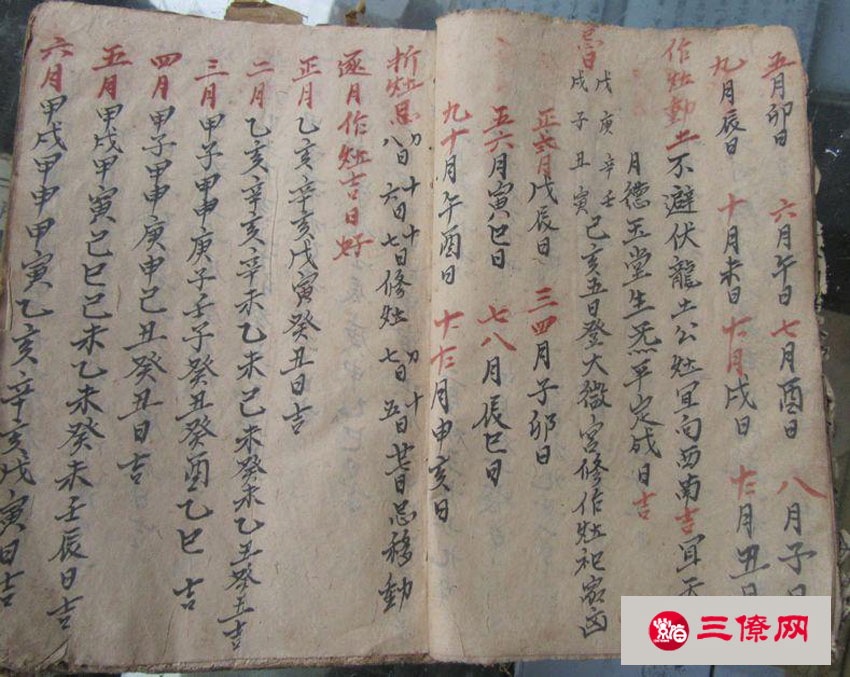 五月卯日 六月午日 七月酉日 八月子日
九月辰日 十月未日 十一月戌日 十二月丑日
作灶動土不避伏龍土公灶宜向西南吉宜天
月德玉堂生炁平定成日吉
忌日戊戌庚子辛丑壬寅己亥五日登大微宮修作灶祀凶
正二月戊辰日 三四月子卯日
五六月寅巳日 七八月辰巳日
九十月午酉日 十一十二月申亥日
折灶忌 初八日 十六日 十七日修灶 初七日 十五日 廿日忌移動
逐月作灶吉日好
正月乙亥辛亥戊寅癸丑日吉
二月乙亥辛亥辛未乙未己未癸未乙丑癸丑吉
三月甲子甲申庚子壬子癸丑癸酉乙巳吉
四月甲子甲申庚申己丑癸丑日吉
五月甲戌甲寅己巳己未乙未癸未壬辰日吉
六月甲戌甲申甲寅乙亥辛亥戊寅日吉
三僚网